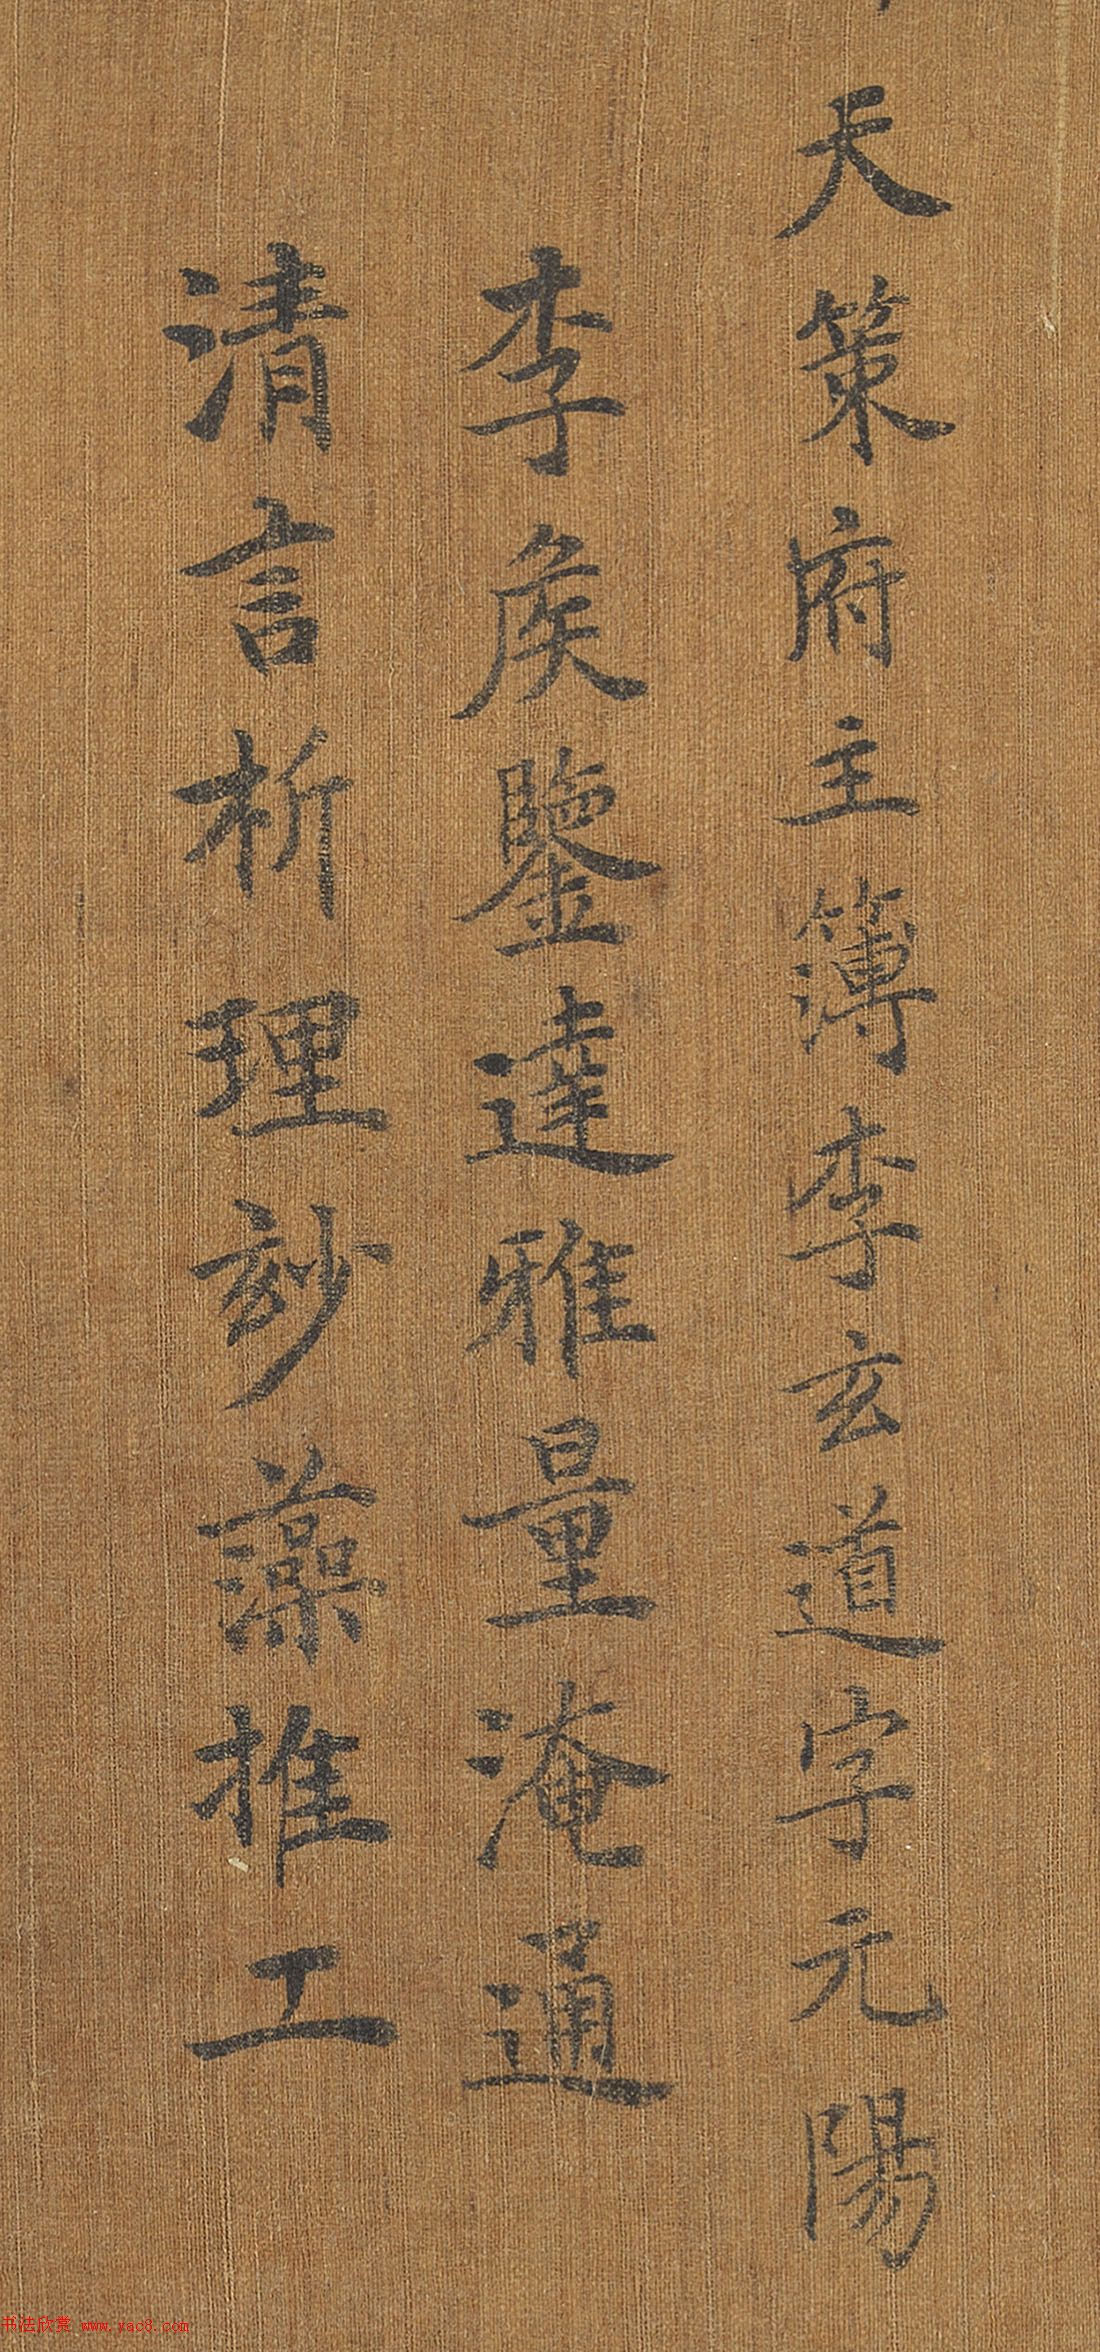 天策府主簿李玄道字元陽
李侯鑒達雅量淹通
清言析理玅藻推工
书法欣赏 www.yac8.com